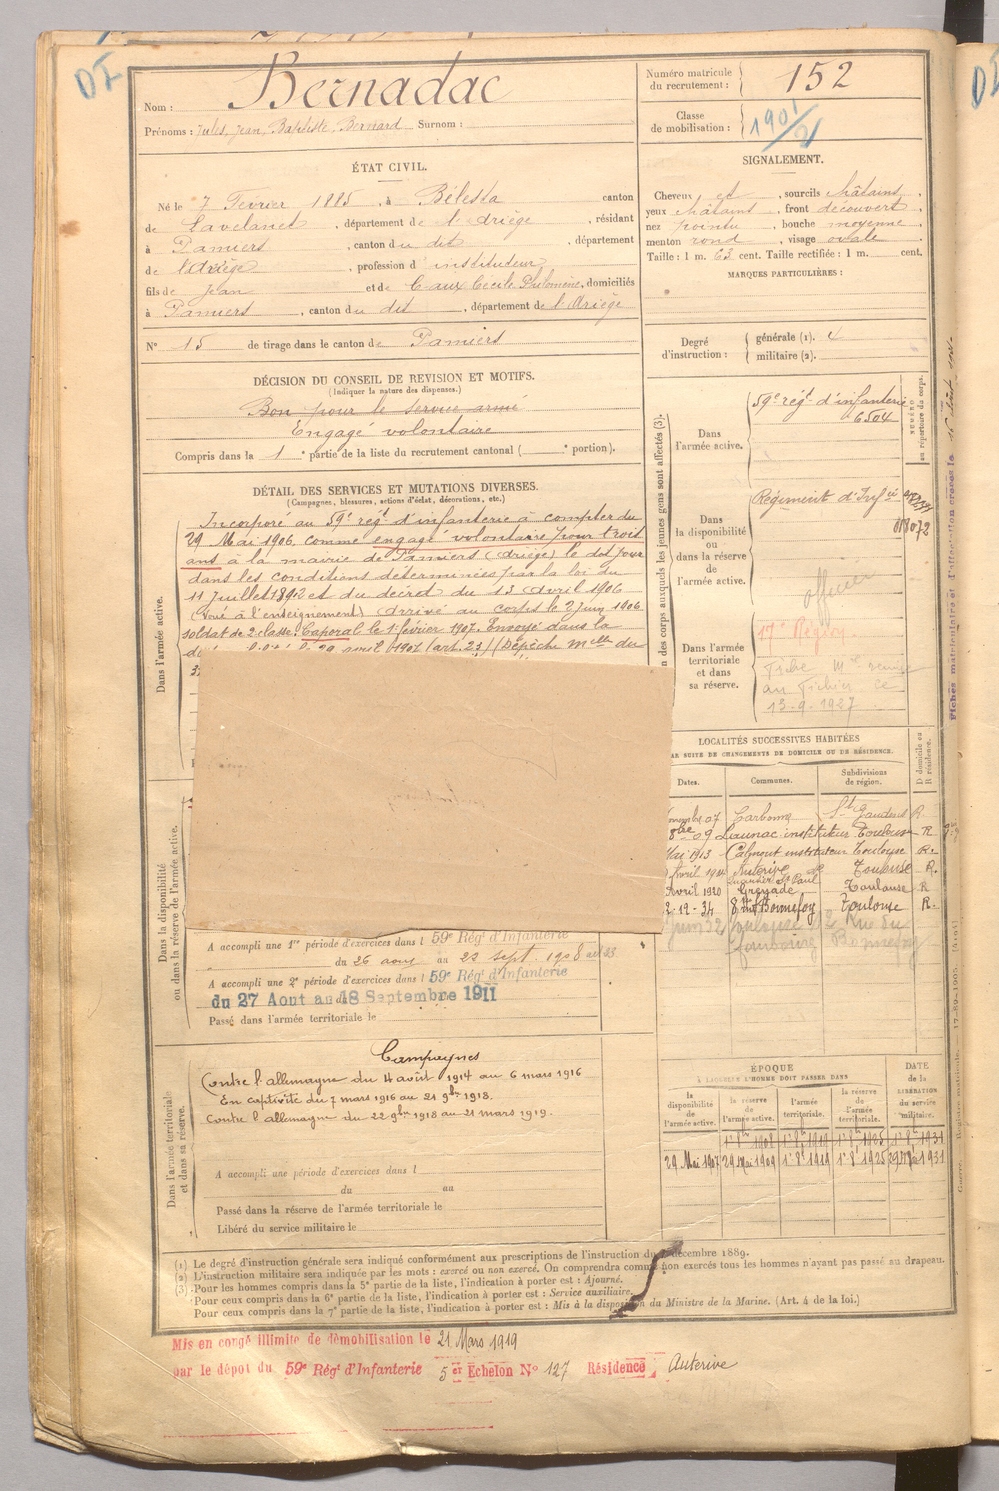 DI
Nom : Bernadac
Prénoms : Jules, Jean, Baptiste, Bernard Surnom :
Numéro matricule du recrutement : 152
Classe de mobilisation : 1901/2
ÉTAT CIVIL.
Né le 7 Février 1885, à Bélesta canton
de Lavelanet, département de l'Ariège, résidant
à Pamiers, canton du dit, département
de l'Ariège, profession d'instituteur
fils de Jean et de Caux Cécile Philomène, domiciliés
à Pamiers, canton du dit, département de l'Ariège
N° 15 de tirage dans le canton de Pamiers
SIGNALEMENT.
Cheveux et, sourcils châtains,
yeux châtains, front découvert,
nez pointu, bouche moyenne,
menton rond, visage ovale
Taille : 1 m. 63 cent. Taille rectifiée : 1 m. cent.
MARQUES PARTICULIÈRES :
Degré d'instruction : générale (1). 4
militaire (2).
DÉCISION DU CONSEIL DE REVISION ET MOTIFS.
(Indiquer la nature des dispenses.)
Bon pour le service armé
Engagé volontaire
Compris dans la 1e partie de la liste du recrutement cantonal ( e portion).
DÉTAIL DES SERVICES ET MUTATIONS DIVERSES.
(Campagnes, blessures, actions d'éclat, décorations, etc.)
Dans l'armée active.
Incorporé au 59e régt d'infanterie à compter du
29 Mai 1906, comme engagé volontaire pour trois
ans à la mairie de Pamiers (Ariège) le dit jour
dans les conditions déterminées par la loi du
11 juillet 1892 et du décret du 13 avril 1906
(voué à l'enseignement) Arrivé au corps le 2 juin 1906
soldat de 2e classe. Caporal le 1er février 1907. Envoyé dans la
avril 1907 (art. 23) (Dépêche Melle du
des corps auxquels les jeunes gens sont affectés (3).
NUMÉRO
au répertoire du corps.
Dans l'armée active.
59e régt d'infanterie
6504
Dans la disponibilité ou dans la réserve de l'armée active.
Régiment d'Infie
officier
Dans l'armée territoriale et dans sa réserve.
17e Région
Fiche Mle remise
au fichier le
13-9-1927
LOCALITÉS SUCCESSIVES HABITÉES
PAR SUITE DE CHANGEMENTS DE DOMICILE OU DE RÉSIDENCE.
Dates. Communes. Subdivisions de région. D domicile ou R résidence.
07 Carbonne St Gaudens R
8bre 09 Launac instituteur Toulouse R
Mai 1913 Calmont instituteur Toulouse R.
Avril 1914 Auterive Toulouse R.
Avril 1920 Grenade Toulouse R
2-12-34 Bonnefoy Toulouse R.
Dans la disponibilité
ou dans la réserve de l'armée active.
A accompli une 1re période d'exercices dans l 59e Régt d'Infanterie
du 26 août au 22 sept. 1908
A accompli une 2e période d'exercices dans l 59e Régt d'Infanterie
du 27 Aout au 18 Septembre 1911
Passé dans l'armée territoriale le
Dans l'armée territoriale
et dans sa réserve.
Campagnes
Contre l'allemagne du 4 août 1914 au 6 mars 1916
En captivité du 7 mars 1916 au 21 9bre 1918.
Contre l'allemagne du 22 9bre 1918 au 21 mars 1919.
A accompli une période d'exercices dans l
du au
Passé dans la réserve de l'armée territoriale le
Libéré du service militaire le
ÉPOQUE
À LAQUELLE L'HOMME DOIT PASSER DANS
la disponibilité de l'armée active.
la réserve de l'armée active.
l'armée territoriale.
la réserve de l'armée territoriale.
DATE de la LIBÉRATION du service militaire.
1er 8bre 1908 1er 8bre 1919 1er 8bre 1925 1er 8bre 1931
29 Mai 1907 29 Mai 1909 1er 8e 1919 1er 8e 1925 29 Mai 1931
(1) Le degré d'instruction générale sera indiqué conformément aux prescriptions de l'instruction du décembre 1889.
(2) L'instruction militaire sera indiquée par les mots : exercé ou non exercé. On comprendra comme non exercés tous les hommes n'ayant pas passé au drapeau.
(3) Pour les hommes compris dans la 5e partie de la liste, l'indication à porter est : Ajourné.
Pour ceux compris dans la 6e partie de la liste, l'indication à porter est : Service auxiliaire.
Pour ceux compris dans la 7e partie de la liste, l'indication à porter est : Mis à la disposition du Ministre de la Marine. (Art. 4 de la loi.)
Mis en congé illimité de démobilisation le 21 Mars 1919
par le dépot du 59e Régt d'Infanterie 5er Echelon N° 127 Résidence Auterive